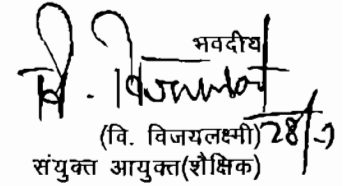 भवदीय
वि. विजयलक्ष्मी
(वि. विजयलक्ष्मी) 28/
संयुक्त आयुक्त(शैक्षिक)